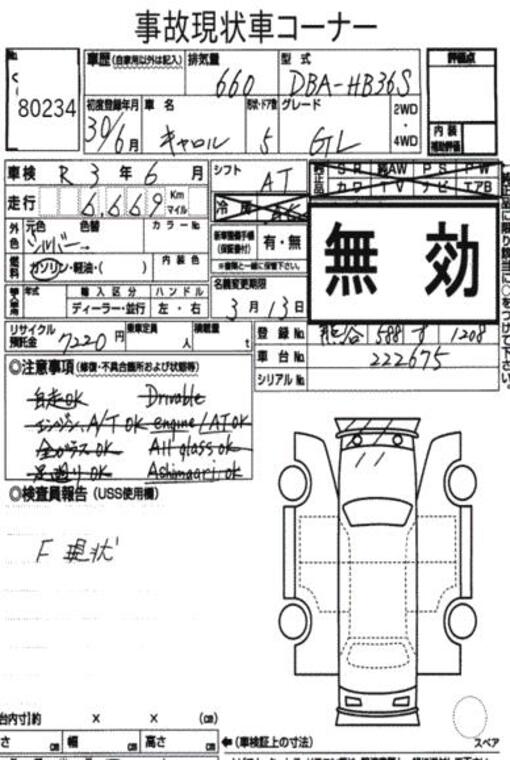 事故現状車コーナー
No. 80234
車歴(自家用以外は記入) 排気量 660 型式 DBA-HB36S 評価点
初度登録年月 30/6月 車名 キャロル 形状・ドア数 5 グレード GL 2WD・4WD
内装補助評価
車検 R3年6月 シフト AT 純正品 SR 純AW PS PW
カワ TV ナビ エアB
走行 6,669 Km マイル 冷房 AC
無効
外色 元色 シルバー 色替 カラーNo. 新車整備手帳(保証書付) 有・無
燃料 ガソリン・軽油・( ) 内装色 ※書類と一緒に保管下さい。
輸入車用 年式 輸入区分 ディーラー・並行 ハンドル 左・右 名義変更期限 3月13日
リサイクル預託金 7220円 乗車定員 人 積載量 t 登録No. 熊谷 588 す 1208
車台No. 222675
シリアルNo.
◎注意事項(修復・不具合箇所および状態等)
自走OK Drivable
エンジン、A/T OK engine/AT OK
全ガラスOK All glass ok
足廻りOK Ashimaari ok
◎検査員報告(USS使用欄)
F 現状
台内寸]約 × × (cm)
さ cm 幅 cm 高さ cm ←(車検証上の寸法)
スペア